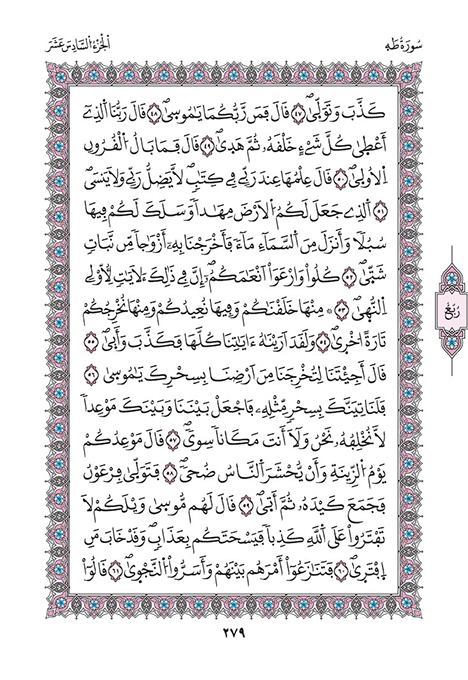 سُورَةُ طَهَ
اَلْجُزْءُ اُ۬لسَّادِسَ عَشَرَ
كَذَّبَ وَتَوَلّ۪ىٰۖ ٤٧ قَالَ فَمَن رَّبُّكُمَا يَٰمُوس۪ىٰۖ ٤٨ قَالَ رَبُّنَا اَ۬لذِےٓ
أَعْط۪ىٰ كُلَّ شَےْءٍ خَلْقَهُۥ ثُمَّ هَد۪ىٰۖ ٤٩ قَالَ فَمَا بَالُ اُ۬لْقُرُونِ
اِ۬لُاول۪ىٰۖ ٥٠ قَالَ عِلْمُهَا عِندَ رَبِّے فِے كِتَٰبٖ لَّا يَضِلُّ رَبِّے وَلَا يَنس۪ىۖ
٥١ اَ۬لذِے جَعَلَ لَكُمُ اُ۬لَارْضَ مِهَٰداٗ وَسَلَكَ لَكُمْ فِيهَا
سُبُلاٗ وَأَنزَلَ مِنَ اَ۬لسَّمَآءِ مَآءٗ فَأَخْرَجْنَا بِهِۦٓ أَزْوَٰجاٗ مِّن نَّبَاتٖ
شَتّ۪ىٰۖ ٥٢ كُلُواْ وَارْعَوَاْ اَنْعَٰمَكُمُۥٓۖ إِنَّ فِے ذَٰلِكَ ءَلَايَٰتٖ لِّأُوْلِے
اِ۬لنُّه۪ىٰۖ ٥٣ ۞ مِنْهَا خَلَقْنَٰكُمْ وَفِيهَا نُعِيدُكُمْ وَمِنْهَا نُخْرِجُكُمْ
تَارَةً ا۟خْر۪ىٰۖ ٥٤ وَلَقَدَ اَرَيْنَٰهُ ءَايَٰتِنَا كُلَّهَا فَكَذَّبَ وَأَب۪ىٰۖ ٥٥
قَالَ أَجِئْتَنَا لِتُخْرِجَنَا مِنَ اَرْضِنَا بِسِحْرِكَ يَٰمُوس۪ىٰ ٥٦
فَلَنَاتِيَنَّكَ بِسِحْرٖ مِّثْلِهِۦ فَاجْعَلْ بَيْنَنَا وَبَيْنَكَ مَوْعِداٗ
لَّا نُخْلِفُهُۥ نَحْنُ وَلَآ أَنتَ مَكَاناٗ سِويٗۖ ٥٧ قَالَ مَوْعِدُكُمْ
يَوْمُ اُ۬لزِّينَةِ وَأَنْ يُّحْشَرَ اَ۬لنَّاسُ ضُحيٗۖ ٥٨ فَتَوَلّ۪ىٰ فِرْعَوْنُ
فَجَمَعَ كَيْدَهُۥ ثُمَّ أَت۪ىٰۖ ٥٩ قَالَ لَهُم مُّوس۪ىٰ وَيْلَكُمْ لَا
تَفْتَرُواْ عَلَى اَ۬للَّهِ كَذِباٗ فَيَسْحَتَكُم بِعَذَابٖۖ وَقَدْ خَابَ مَنِ
اِ۪فْتَر۪ىٰۖ ٦٠ فَتَنَٰزَعُوٓاْ أَمْرَهُم بَيْنَهُمْ وَأَسَرُّواْ اُ۬لنَّجْو۪ىٰۖ ٦١ قَالُوٓاْ
رُبُعْ
٢٧٩